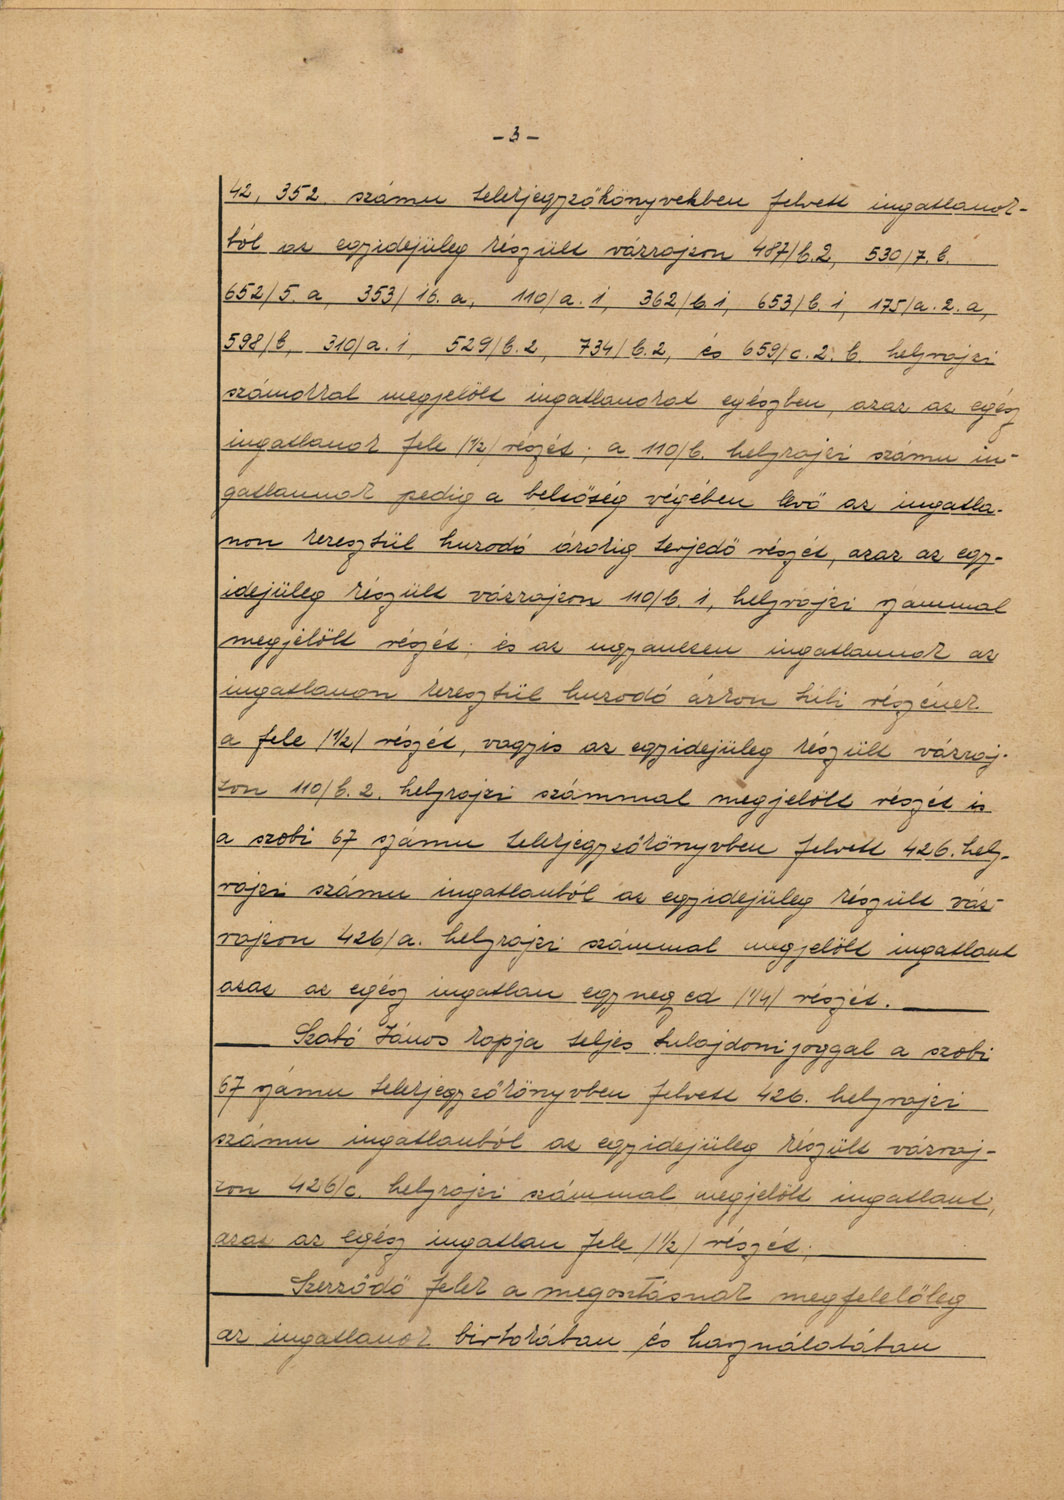 - 3 -
42, 352 számu telekjegyzőkönyvekben felvett ingatlanok-
ból az egyidejüleg készült vázrajzon 487/b.2, 530/7.b.
652/5.a, 353/16.a, 110/a.1, 362/b.1, 653/b.1, 175/a.2.a,
598/b, 310/a.1, 529/b.2, 734/b.2, és 659/c.2.b. helyrajzi
számokkal megjelölt ingatlanokat egészben, azaz az egész
ingatlanok fele /1/2/ részét; a 110/b. helyrajzi számu in-
gatlannak pedig a belsőség végében levő az ingatla-
non keresztül huzodó árokig terjedő részét, azaz az egy-
idejüleg készült vázrajzon 110/b.1, helyrajzi számmal
megjelölt részét; és az ugyanezen ingatlannak az
ingatlanon keresztül huzodó árkon tuli részének
a fele /1/2/ részét, vagyis az egyidejüleg készült vázraj-
zon 110/b.2. helyrajzi számmal megjelölt részét is
a szobi 67 számu telekjegyzőkönyvben felvett 426. hely-
rajzi számu ingatlanból az egyidejüleg készült váz-
rajzon 426/a. helyrajzi számmal megjelölt ingatlant
azaz az egész ingatlan egynegyed /1/4/ részét.
Szabó János kapja teljes tulajdonijoggal a szobi
67 számu telekjegyzőkönyvben felvett 426. helyrajzi
számu ingatlanból az egyidejüleg készült vázraj-
zon 426/c. helyrajzi számmal megjelölt ingatlant,
azaz az egész ingatlan fele /1/2/ részét.
Szerződő felek a megosztásnak megfelelőleg
az ingatlanok birtokában és használatában